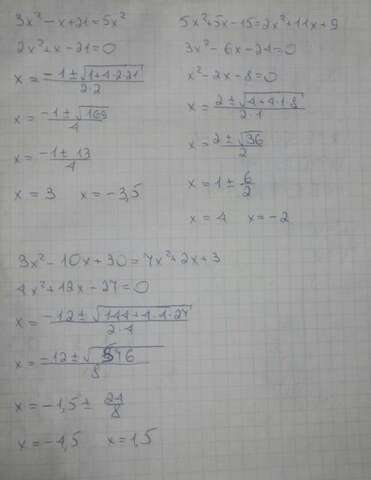 3x² - x + 21 = 5x²
2x² + x - 21 = 0
x = (-1 ± √(1 + 4·2·21)) / (2·2)
x = (-1 ± √169) / 4
x = (-1 ± 13) / 4
x = 3 x = -3,5
5x² + 5x - 15 = 2x² + 11x + 9
3x² - 6x - 24 = 0
x² - 2x - 8 = 0
x = (2 ± √(4 + 4·1·8)) / (2·1)
x = (2 ± √36) / 2
x = 1 ± 6/2
x = 4 x = -2
3x² - 10x + 30 = 7x² + 2x + 3
4x² + 12x - 27 = 0
x = (-12 ± √(144 + 4·4·27)) / (2·4)
x = (-12 ± √576) / 8
x = -1,5 ± 24/8
x = -4,5 x = 1,5